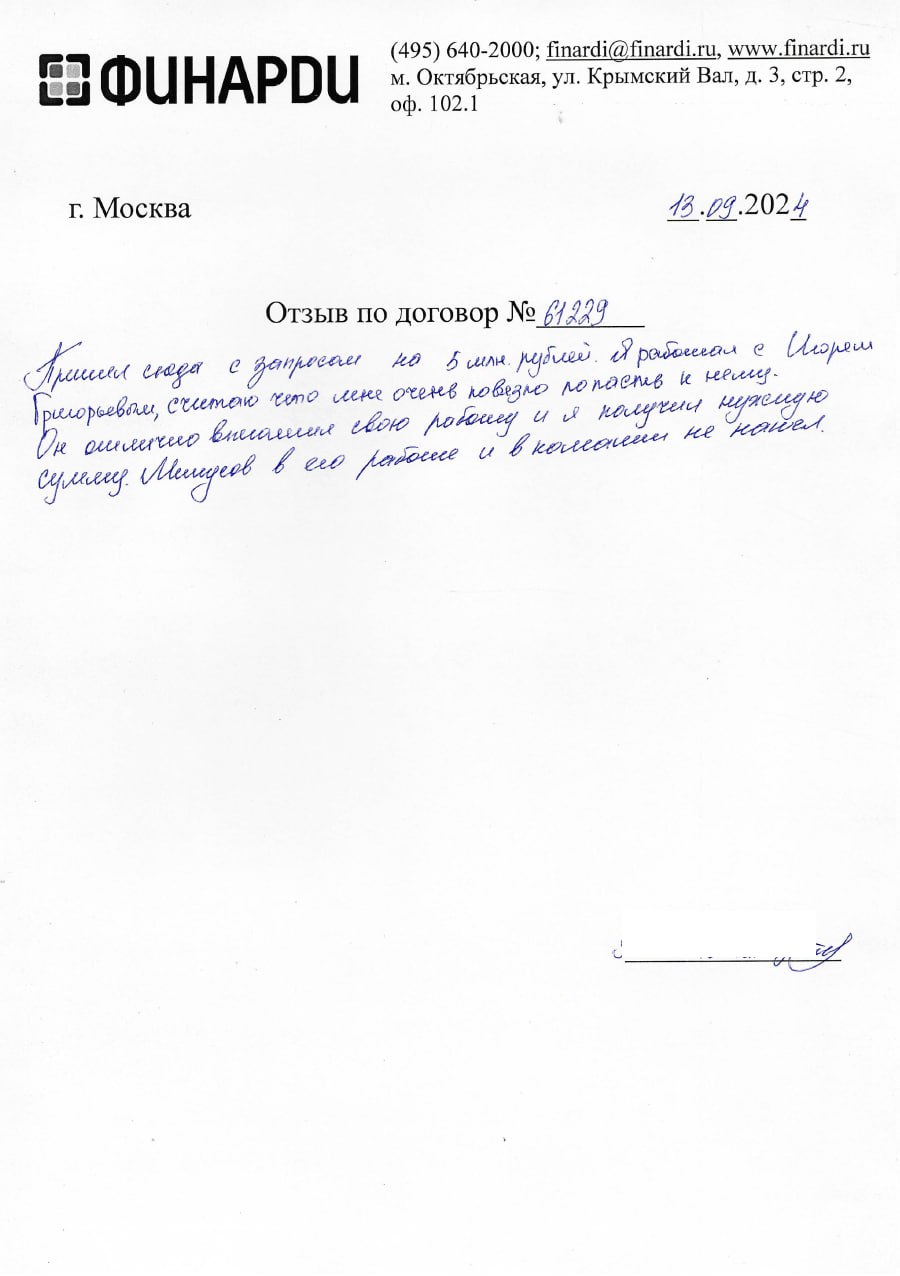 ФИНАРДИ
(495) 640-2000; finardi@finardi.ru, www.finardi.ru
м. Октябрьская, ул. Крымский Вал, д. 3, стр. 2,
оф. 102.1
г. Москва
13.09.2024
Отзыв по договор № 61229
Пришел сюда с запросом на 5 млн. рублей. Я работал с Игорем
Григорьевым, считаю что мне очень повезло попасть к нему.
Он отлично выполнил свою работу и я получил нужную
сумму. Минусов в его работе и в компании не нашел.